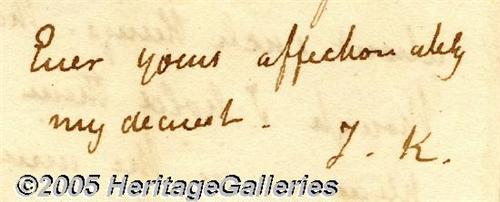 Ever yours affectionately
my dearest. J. K.
©2005 HeritageGalleries